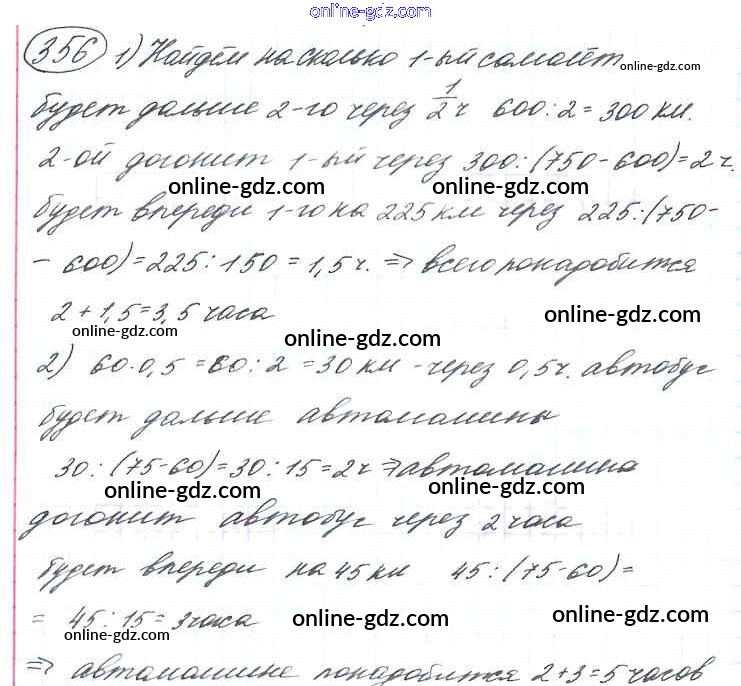 online-gdz.com
356 1) Найдём на сколько 1-ый самолёт
online-gdz.com
будет дальше 2-го через 1/2 ч 600:2=300 км.
2-ой догонит 1-ый через 300:(750-600)=2 ч.
online-gdz.com online-gdz.com
будет впереди 1-го на 225 км через 225:(750-
- 600)=225:150=1,5 ч. => всего понадобится
2+1,5=3,5 часа
online-gdz.com online-gdz.com online-gdz.com
2) 60·0,5=60:2=30 км - через 0,5 ч. автобус
будет дальше автомашины
30:(75-60)=30:15=2 ч => автомашина
online-gdz.com online-gdz.com
догонит автобус через 2 часа
будет впереди на 45 км 45:(75-60)=
= 45:15=3 часа
online-gdz.com online-gdz.com online-gdz.com
=> автомашине понадобится 2+3=5 часов